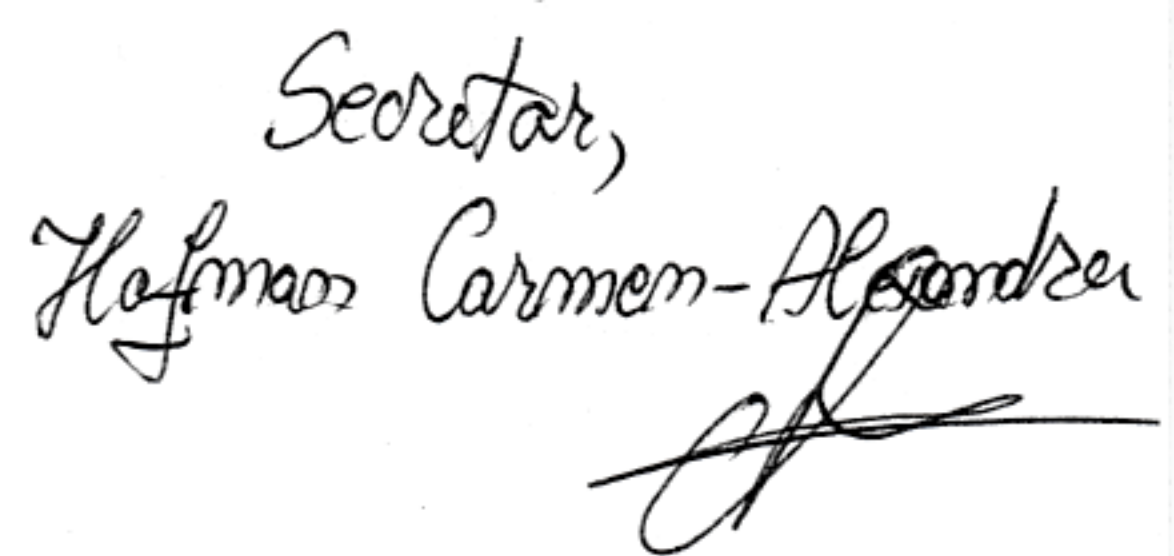 Secretar,
Hofman Carmen-Alexandra